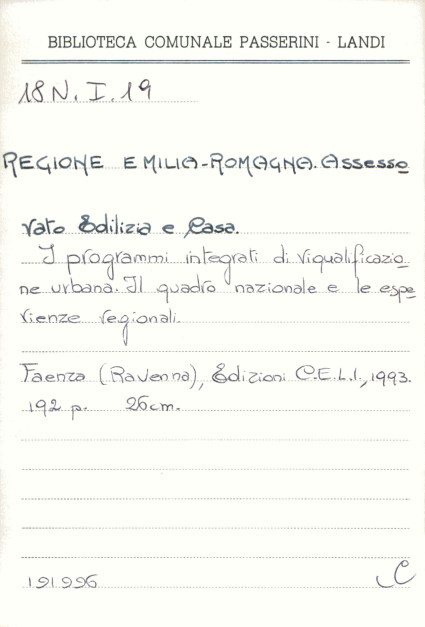 BIBLIOTECA COMUNALE PASSERINI - LANDI
18 N. I. 19
REGIONE EMILIA-ROMAGNA. Assesso
rato Edilizia e Casa.
I programmi integrati di riqualificazio
ne urbana. Il quadro nazionale e le espe
rienze regionali.
Faenza (Ravenna), Edizioni C.E.L.I., 1993.
192 p. 26cm.
191996 C